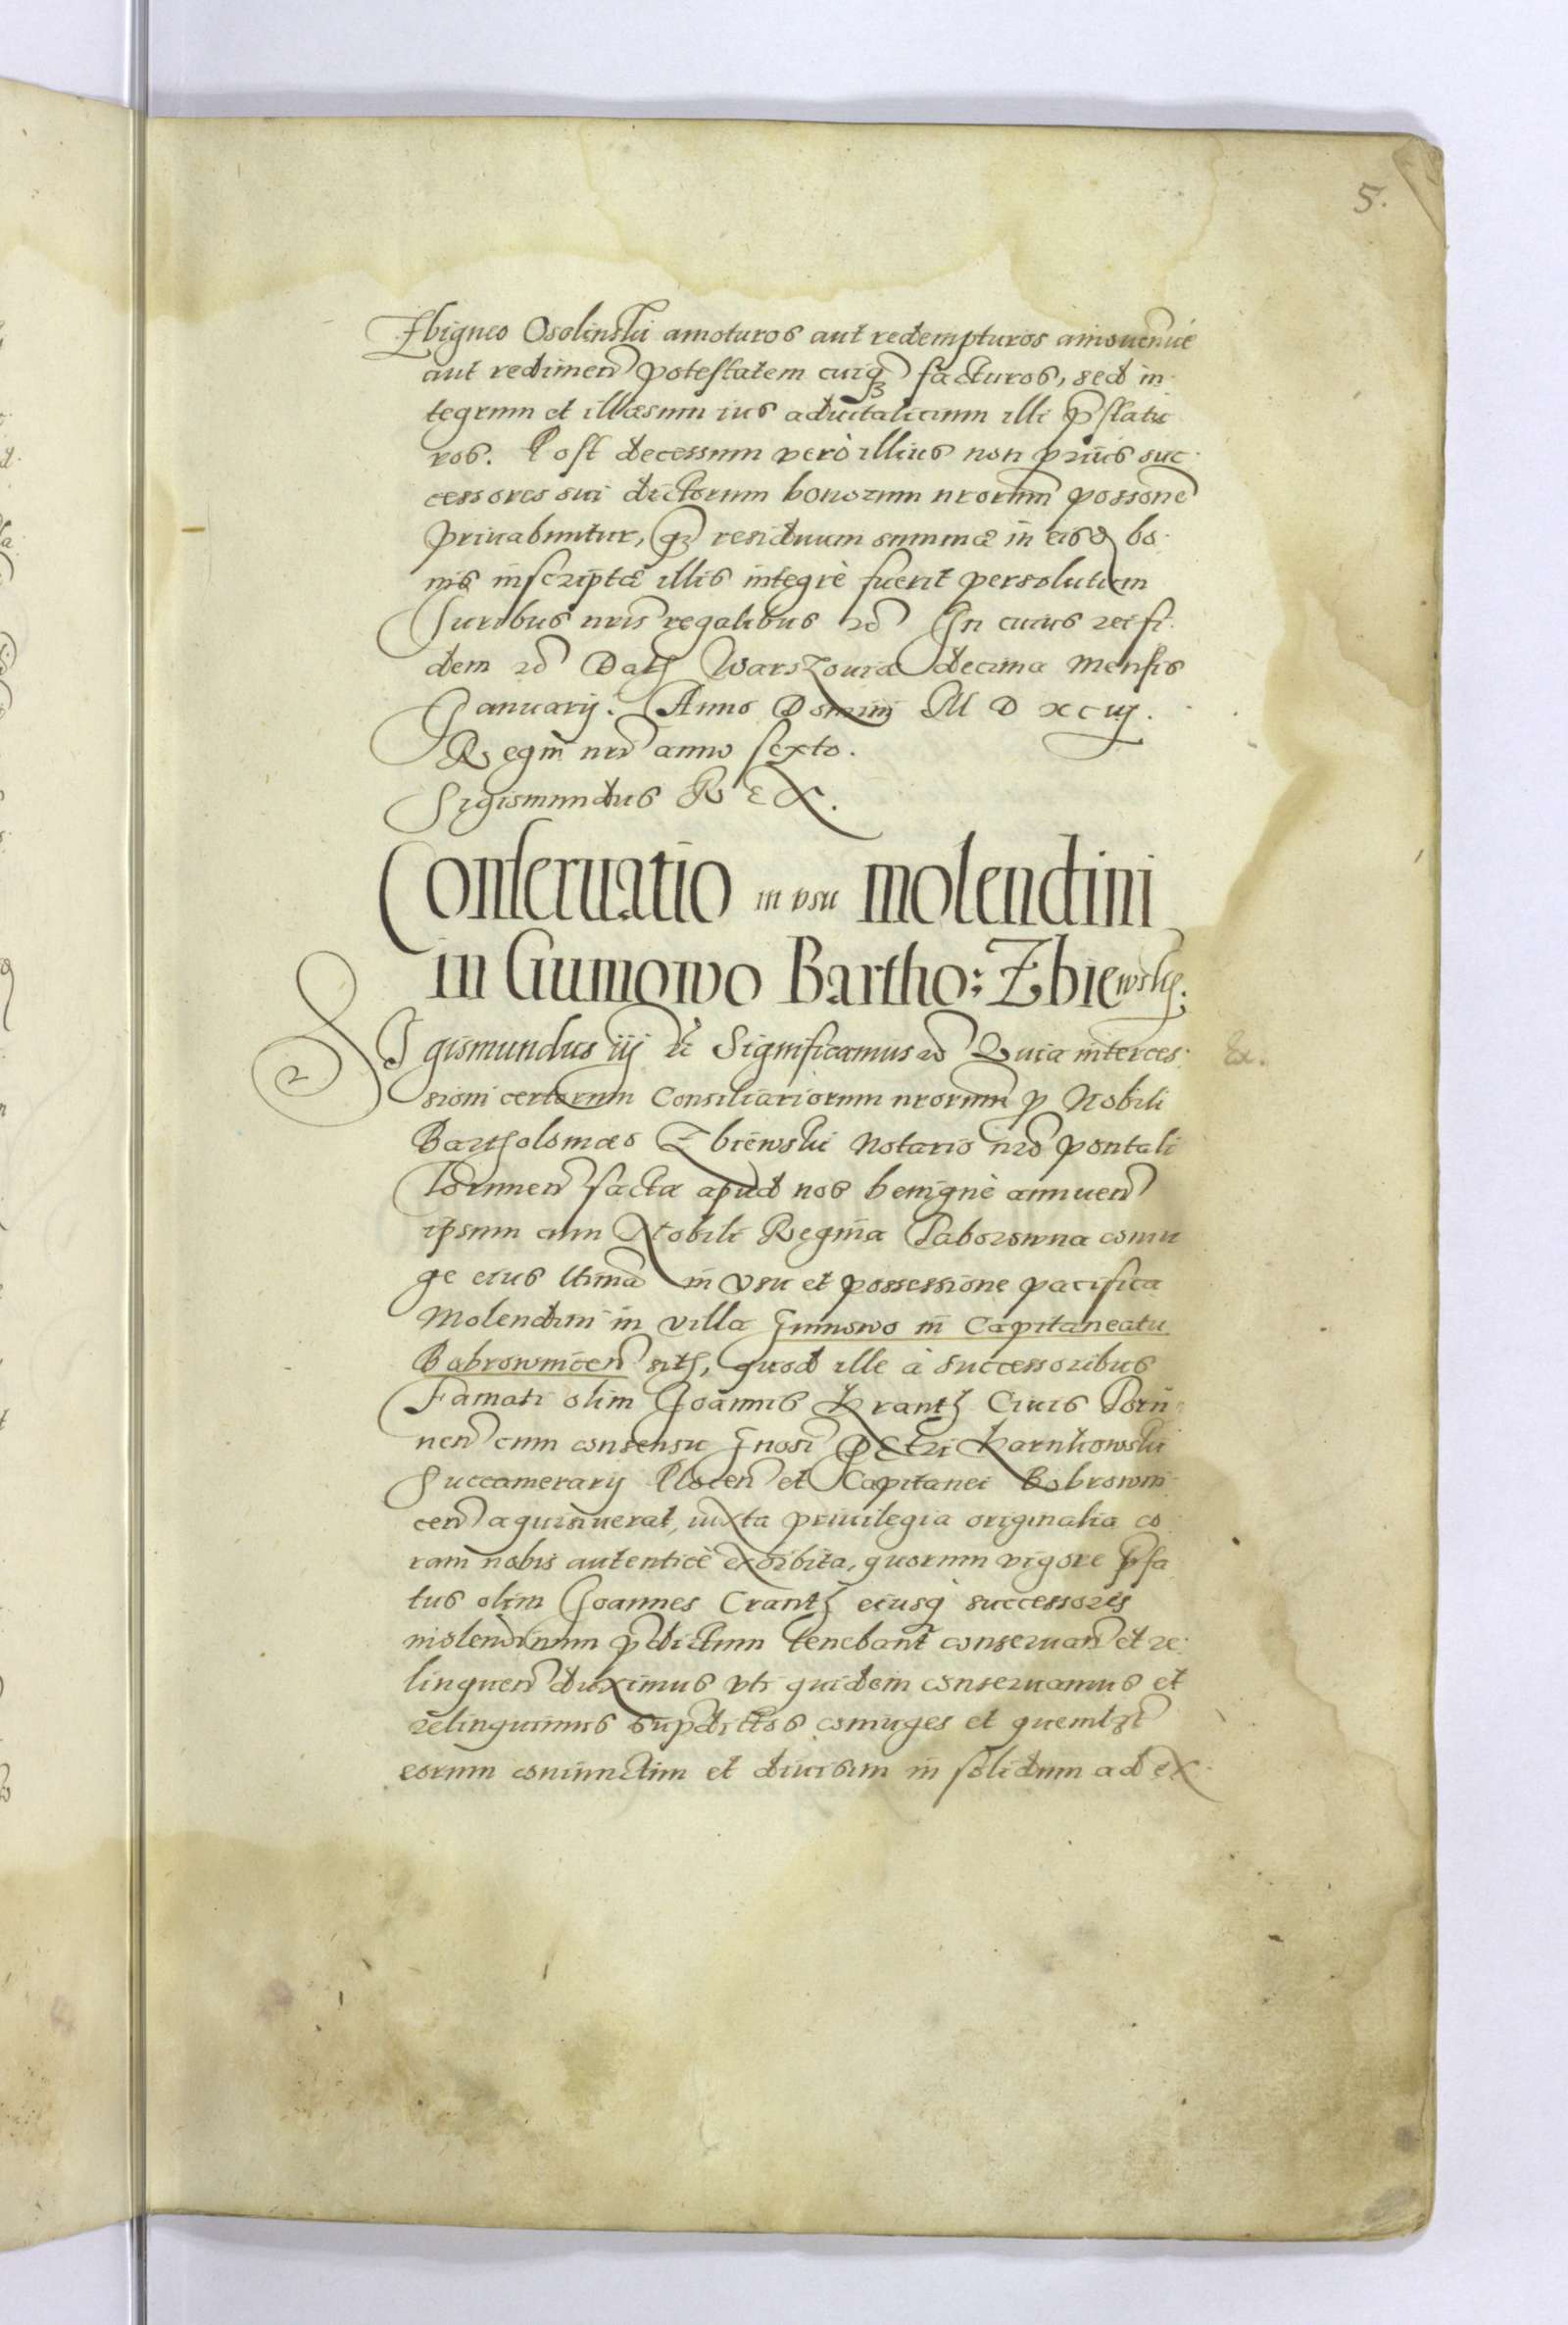 5.
Zbigneo Osolinski amoturos aut redempturos amouendive
aut redimen potestatem cuiqz facturos, sed in
tegrum et illæsum ius aduitalicium illi pstatu
ros. Post decessum verò illius non prius suc
cessores sui dictorum bonorum nrorum possone
priuabuntur, qz residuum summæ in eisd bo
nis inscriptæ illis integrè fuerit persolutum
Juribus nris regalibus &c In cuius rei fi
dem &c Dat Warszouiæ decima Mensis
Januarij. Anno Domini M D xciij.
Regni nri anno sexto.
Sigismundus REX.
Conseruatio in vsu molendini
in Gumowo Bartho: Zbiewsky.
Sigismundus iij &c Significamus &c Quia interces
Ex.
sioni certorum Consiliariorum nrorum p Nobili
Bartholomæo Zbiewski Notario nro pontali
Torunen facta apud nos benignè annuen
ipsum cum Nobili Regina Taborowna coniu
ge eius ltima in vsu et possessione pacifica
Molendini in villa Gumowo in Capitaneatu
Bobrownicen sit, quod ille à successoribus
Famati olim Joannis Krantz Ciuis Toru
nen cum consensu Gnosi Petri Karnkowski
Succamerarij Plocen et Capitanei Bobrowni
cen aquisiuerat, iuxta priuilegia originalia co
ram nobis autenticè exhibita, quorum vigore pfa
tus olim Joannes Crantz eiusq successores
molendinum pdictum tenebant conseruan et re
linquen duximus vti quidem conseruamus et
relinquimus supdictos coniuges et quemlzt
eorum coniunctim et diuisim in solidum ad ex